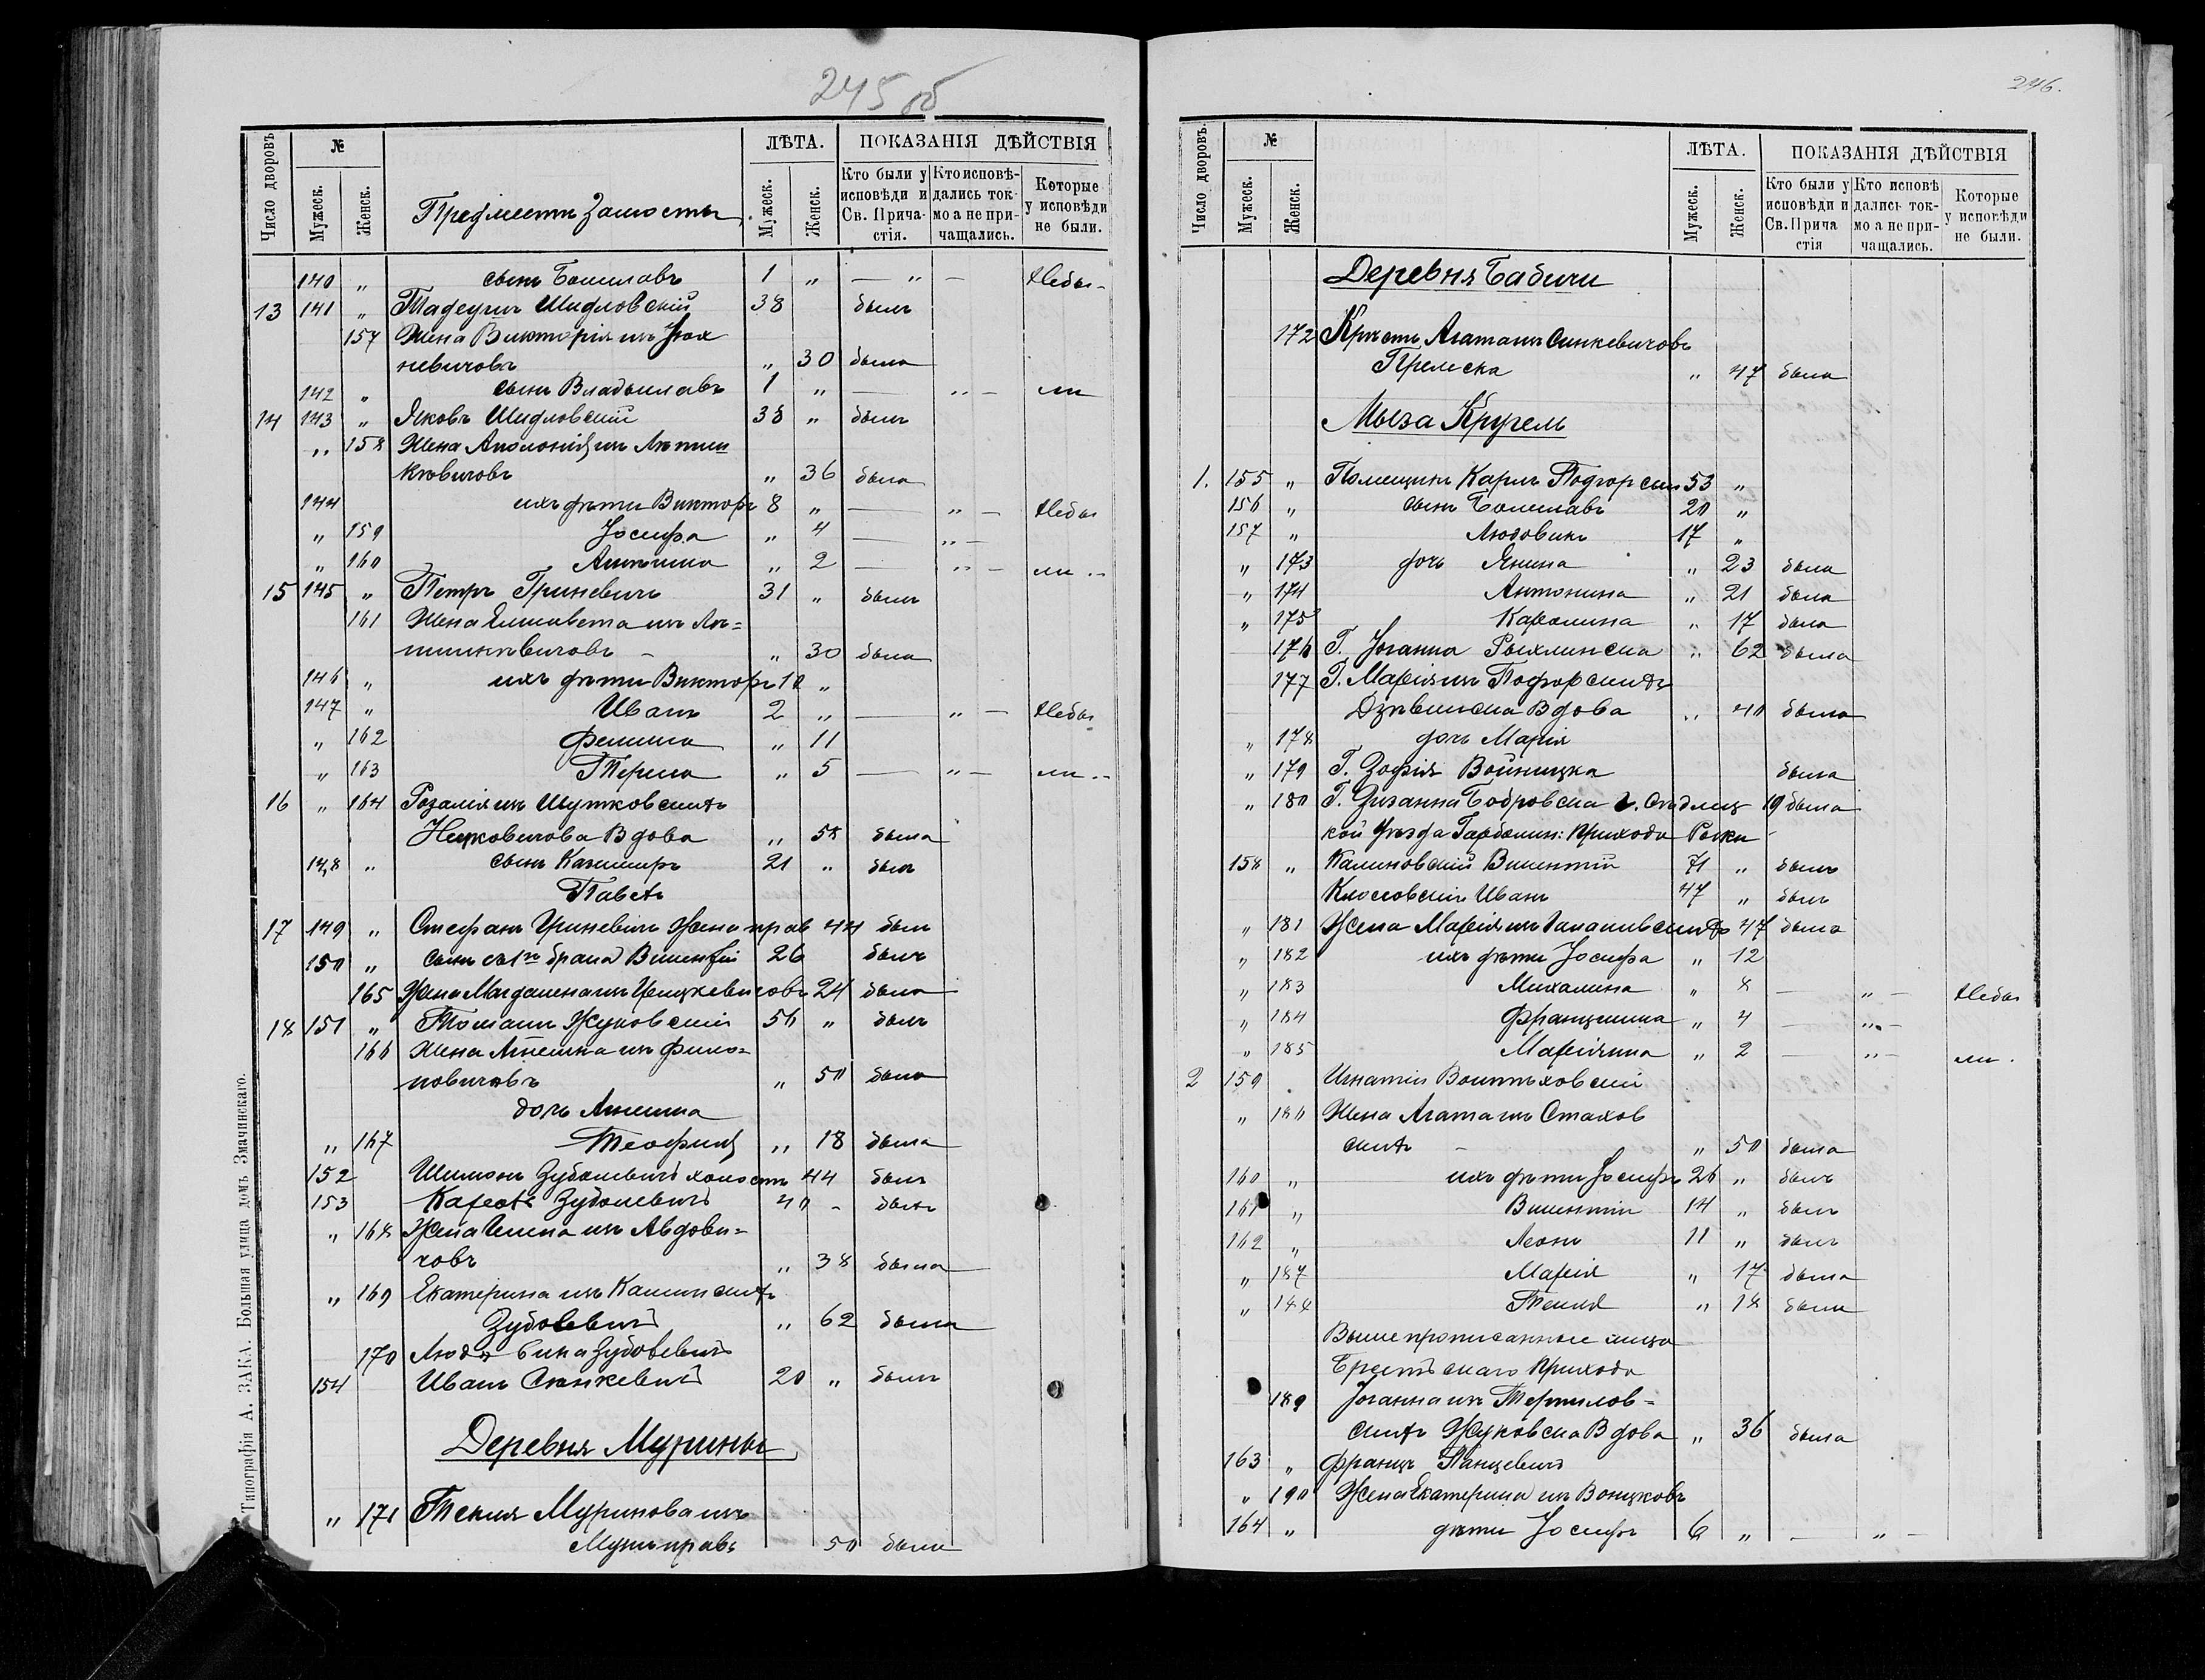 245 об
Число дворовъ
№
Мужеск.
Женск.
Предмести Замосты
ЛѢТА.
Мужеск.
Женск.
ПОКАЗАНІЯ ДѢЙСТВІЯ
Кто были у исповѣди и Св. Прича-стія.
Кто исповѣ-дались ток-мо а не при-чащались.
Которые у исповѣди не были.
140 „ сынъ Болиславъ 1 „ — „ — Небы-
13 141 „ Тадеушъ Шидловскій 38 былъ
157 Жена Викторія изъ Юх
невичовъ „ 30 была
142 „ сынъ Владыславъ 1 „ — „ — ли
14 143 „ Яковъ Шидловскій 38 „ былъ
„ 158 Жена Аполонія изъ
„ 36 была
144 ихъ дѣти Викторъ 8 „ — „ — Небы
„ 159 Іосифа „ 4 — „ —
„ 160 Антонина „ 2 — „ — ли „
15 145 „ Петръ Гриневичъ 31 „ былъ
161 Жена Елисавета изъ
„ 30 была
146 „ ихъ дѣти Викторъ 10 „
147 „ Иванъ 2 „ — „ — Небы
„ 162 Фелиція „ 11
„ 163 Тереса „ 5 — „ — ли „
16 „ 164 Розалія изъ Шутковскихъ
Нецковичова Вдова „ 58 была
148 „ сынъ Казимиръ 21 „ былъ
Павелъ
17 149 „ Стефанъ Гриневичъ Жена прав 44 был
150 „ сынъ съ 1го брака Викентій 26 былъ
165 Жена Магдалена изъ 24 была
18 151 „ Томашъ Жуковскій 50 „ былъ
166 Жена Агнешка изъ Фили=
повичовъ „ 50 была
дочь Анелина
„ 167 Теофиля „ 18 была
152 Шимонъ Зубалевичъ холостъ 44 былъ
153 Кароль Зубалевичъ 40 - былъ
„ 168 Жена Елена изъ Авдови=
човъ „ 38 была
„ 169 Екатерина изъ Калинскихъ
Зубовевичъ „ 62 была
170 Людвина Зубовевичъ
154 Иванъ Сынкевичъ 20 „ былъ
Деревня Мурины
„ 171 Текля Муринова изъ
Мужъ правъ 50 была
Типографія А. ЗАКА. Большая улица домъ Змачинскаго.
246.
Число дворовъ.
№
Мужеск.
Женск.
ЛѢТА.
Мужеск.
Женск.
ПОКАЗАНІЯ ДѢЙСТВІЯ
Кто были у исповѣди и Св. Прича стія
Кто исповѣ дались ток-мо а не при-чащались.
Которые у исповѣди не были.
Деревня Бабичи
172 Крест. Агата изъ Синкевичовъ
Прельска „ 47 была
Мыза Кругель
1. 155 „ Помещикъ Карлъ Подгорскій 53 „
156 „ сынъ Болиславъ 20 „
157 „ Людовикъ 17 „
„ 173 дочь Янина „ 23 была
„ 174 Антонина „ 21 была
„ 175 Каролина „ 17 была
176 Г. Іоганна Рыхлинска „ 62 была
177 Г. Марія изъ Подгорскихъ
Вдова „ 40 была
„ 178 дочь Марія
„ 179 Г. Зофія Войницка была
„ 180 Г. Зузанна Бобровска г. Сѣдлец- 19 была
кой уѣзда прихода
158 „ Калиновскій Викентій 71 „ былъ
Клосовскій Иванъ 47 „ былъ
„ 181 Жена Марія изъ 47 была
„ 182 ихъ дѣти Іосифа „ 12
„ 183 Михалина „ 8 — „ — Небы
„ 184 Францишка „ 4 — „ —
„ 185 Маріянна „ 2 — „ — ли.
2 159 Игнатій Войтѣховскій
„ 186 Жена Агата изъ Стахов
скихъ - „ 50 была
160 „ ихъ дѣти Іосифъ 26 „ былъ
161 „ Викентій 14 „ былъ
162 „ Леонъ 11 „ былъ
„ 187 Марія „ 17 была
„ 188 Текля „ 18 была
Вышепрописанные лица
Брестскаго прихода
189 Іоганна изъ
скихъ Жуковска Вдова „ 36 была
163 „ Францъ Панцевичъ
„ 190 Жена Екатерина изъ
164 „ дѣти Іосифъ 6 „ — „ —